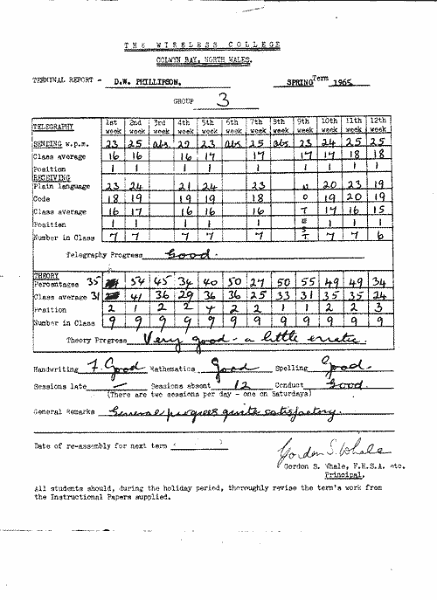 THE WIRELESS COLLEGE
COLWYN BAY, NORTH WALES.
TERMINAL REPORT - D.W. PHILLIPSON. SPRING Term 1965
GROUP 3
TELEGRAPHY 1st week 2nd week 3rd week 4th week 5th week 6th week 7th week 8th week 9th week 10th week 11th week 12th week
SENDING w.p.m. 23 25 abs 22 23 abs 25 abs 23 24 25 25
Class average 16 16 16 17 17 17 17 18 18
Position 1 1 1 1 1 1 1 1 1
RECEIVING
Plain language 23 24 21 24 23 20 23 19
Code 18 19 19 19 18 19 20 19
Class average 16 17 16 16 16 17 16 15
Position 1 1 1 1 1 1 1 1
Number in Class 7 7 7 7 7 7 7 6
Telegraphy Progress Good.
THEORY
Percentages 35 54 45 34 40 50 27 50 55 49 49 34
Class average 31 41 36 29 36 36 25 33 31 35 35 24
Position 2 1 2 2 4 2 2 1 1 2 2 3
Number in Class 9 9 9 9 9 9 9 9 9 9 9 9
Theory Progress Very good - a little erratic.
Handwriting F. Good Mathematics Good Spelling Good.
Sessions late — Sessions absent 12 Conduct Good.
(There are two sessions per day - one on Saturdays)
General Remarks General progress quite satisfactory.
Date of re-assembly for next term ( )
Gordon S. Whale
Gordon S. Whale, F.R.S.A. etc.
Principal.
All students should, during the holiday period, thoroughly revise the term's work from
the Instructional Papers supplied.